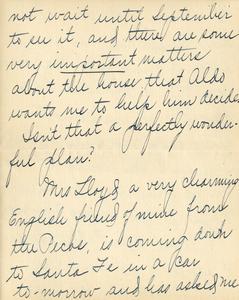 not wait until September
to see it, and there are some
very important matters
about the house that Aldo
wants me to help him decide.
Isnt that a perfectly wonder-
ful plan?
Mrs Lloyd, a very charming
English friend of mine from
the Pecos, is coming down
to Santa Fe in a car
to-morrow and has asked me